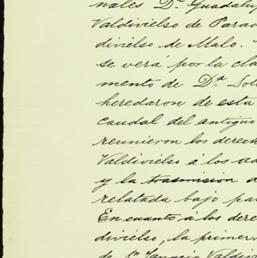 nales D.ª Guadalup
Valdivielso de Parad
divielso de Malo.
se vera por la cla
mento de D.ª Sol
heredaron de esta
caudal del antiguo
reunieron los derech
Valdivielso á los ad
y la trasmision d
relatada bajo pa
En cuanto á los dere
divielso, la primer
de S.r Ignacio Valdiv